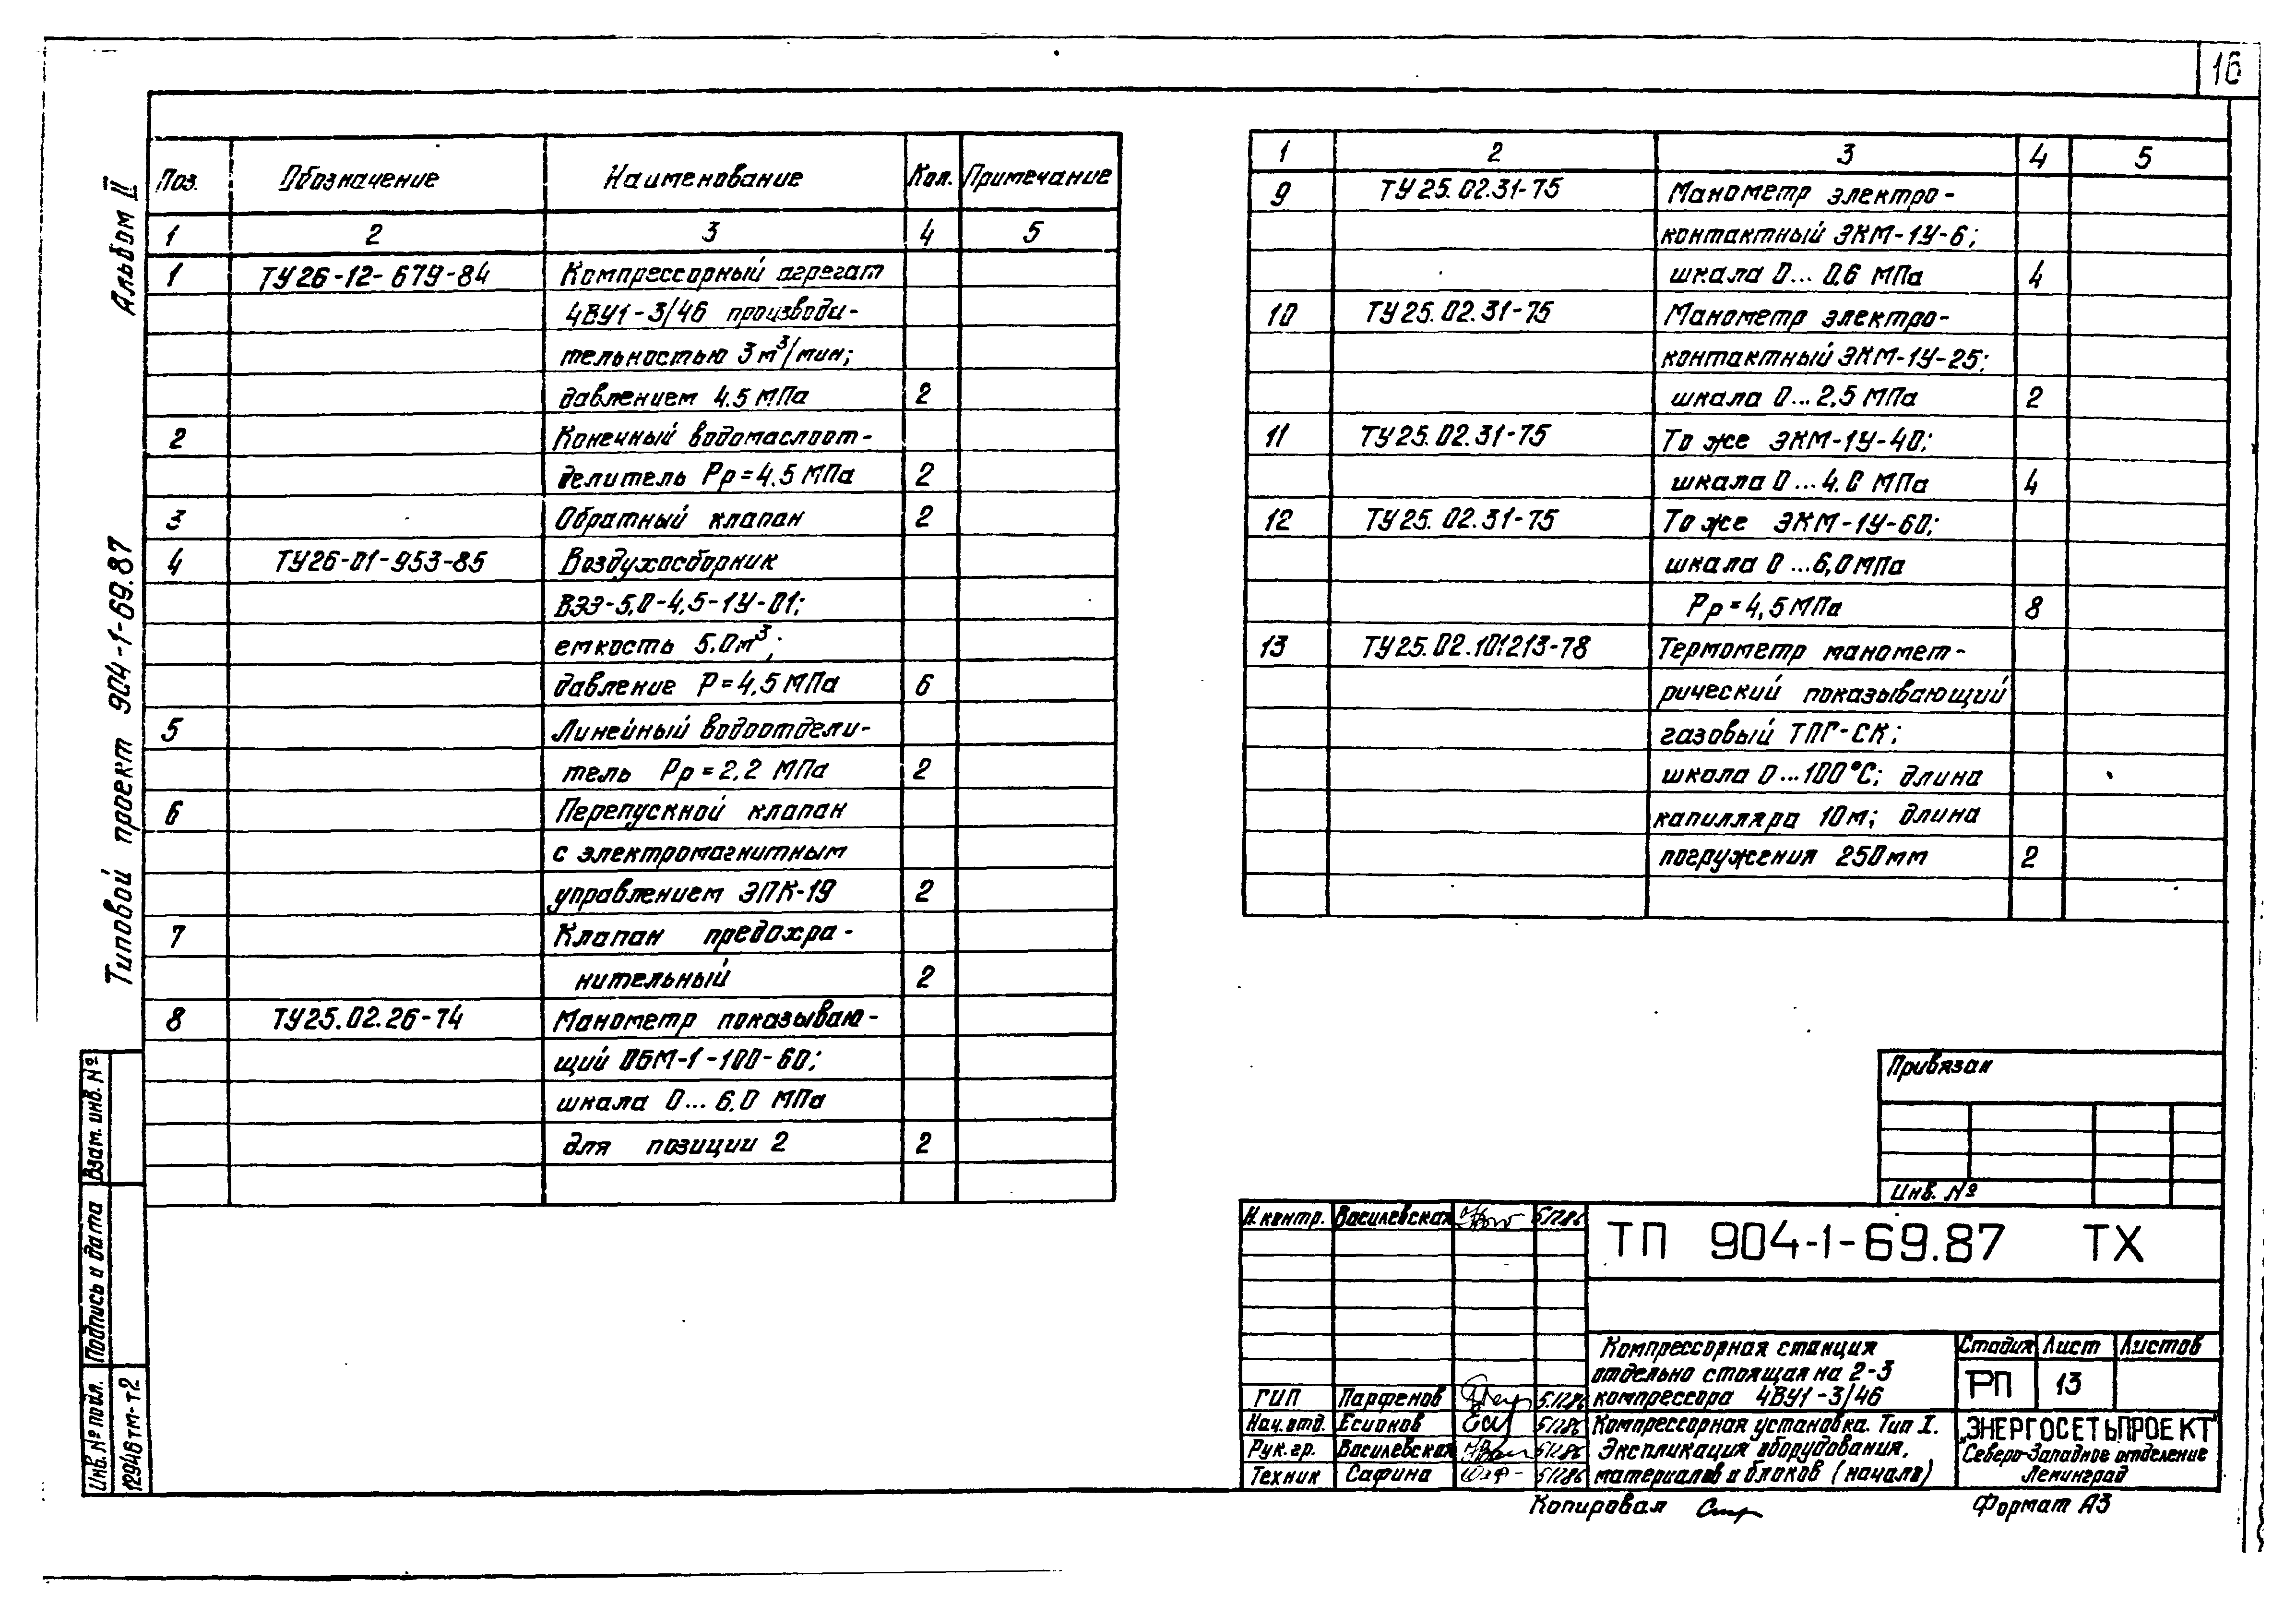 16
Альбом II
Типовой проект 904-1-69.87
Поз. Обозначение Наименование Кол. Примечание
1 2 3 4 5
1 ТУ26-12-679-84 Компрессорный агрегат
4ВУ1-3/46 производи-
тельностью 3м³/мин;
давлением 4.5 МПа 2
2 Конечный водомаслоот-
делитель Рр=4.5 МПа 2
3 Обратный клапан 2
4 ТУ26-01-953-85 Воздухосборник
ВЭЭ-5,0-4,5-1У-01;
емкость 5.0м³;
давление Р=4,5 МПа 6
5 Линейный водоотдели-
тель Рр=2,2 МПа 2
6 Перепускной клапан
с электромагнитным
управлением ЭПК-19 2
7 Клапан предохра-
нительный 2
8 ТУ25.02.26-74 Манометр показываю-
щий ОБМ-1-100-60;
шкала 0...6.0 МПа
для позиции 2 2
1 2 3 4 5
9 ТУ25.02.31-75 Манометр электро-
контактный ЭКМ-1У-6;
шкала 0...0.6 МПа 4
10 ТУ25.02.31-75 Манометр электро-
контактный ЭКМ-1У-25;
шкала 0...2,5 МПа 2
11 ТУ25.02.31-75 То же ЭКМ-1У-40;
шкала 0...4.0 МПа 4
12 ТУ25.02.31-75 То же ЭКМ-1У-60;
шкала 0...6,0 МПа
Рр=4,5 МПа 8
13 ТУ25.02.101213-78 Термометр маномет-
рический показывающий
газовый ТПГ-СК;
шкала 0...100°С; длина
капилляра 10м; длина
погружения 250мм 2
Привязан
Инв. №
Взам. инв. №
Подпись и дата
Инв. № подл.
12946тм-т2
Н.контр. Василевская 5.12.86
ТП 904-1-69.87 ТХ
Компрессорная станция
отдельно стоящая на 2-3
компрессора 4ВУ1-3/46
Стадия Лист Листов
РП 13
ГИП Парфенов 5.12.86
Нач.отд. Есипков 5.12.86
Рук.гр. Василевская 5.12.86
Техник Сафина 5.12.86
Компрессорная установка. Тип I.
Экспликация оборудования,
материалов и блоков (начало)
„ЭНЕРГОСЕТЬПРОЕКТ"
Северо-Западное отделение
Ленинград
Копировал
Формат А3